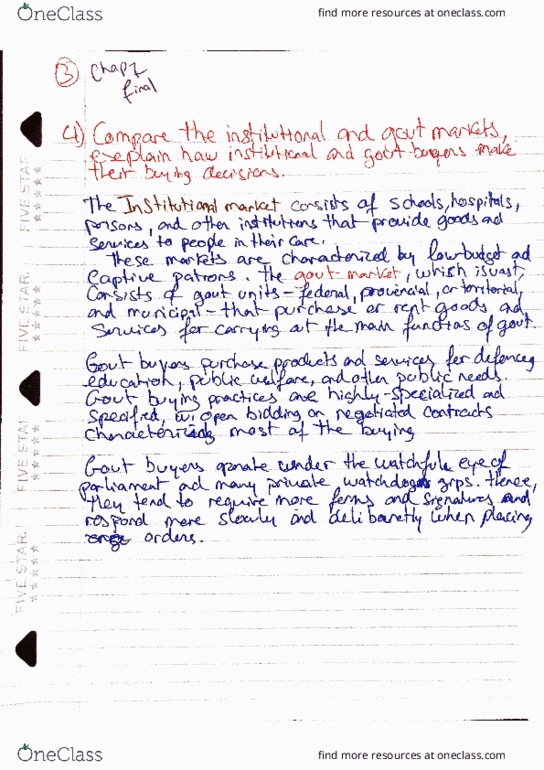 OneClass
find more resources at oneclass.com
3
Chap 7
final
4) Compare the institutional and gout markets,
explain how institutional and gout buyers make
their buying decisions.
The Institutional market consists of schools, hospitals,
prisons, and other institutions that provide goods and
services to people in their care.
These markets are characterized by low budget ad
captive patrons. The gout market, which is vast,
consists of gout units - federal, provincial, or territorial,
and municipal - that purchase or rent goods and
services for carrying out the main functions of gout.
Gout buyers purchase products and services for defence,
education, public welfare, and other public needs.
Gout buying practices are highly-specialized and
specified, w/ open bidding or negotiated contracts
characterizing most of the buying
Gout buyers operate under the watchfule eye of
parliament ad many private watchdog grps. Hence,
they tend to require more forms and signatures and
respond more slowly and deliberately when placing
orders.
FIVE STAR.
FIVE STAR.
FIVE STAR.
FIVE STAR.
OneClass
find more resources at oneclass.com